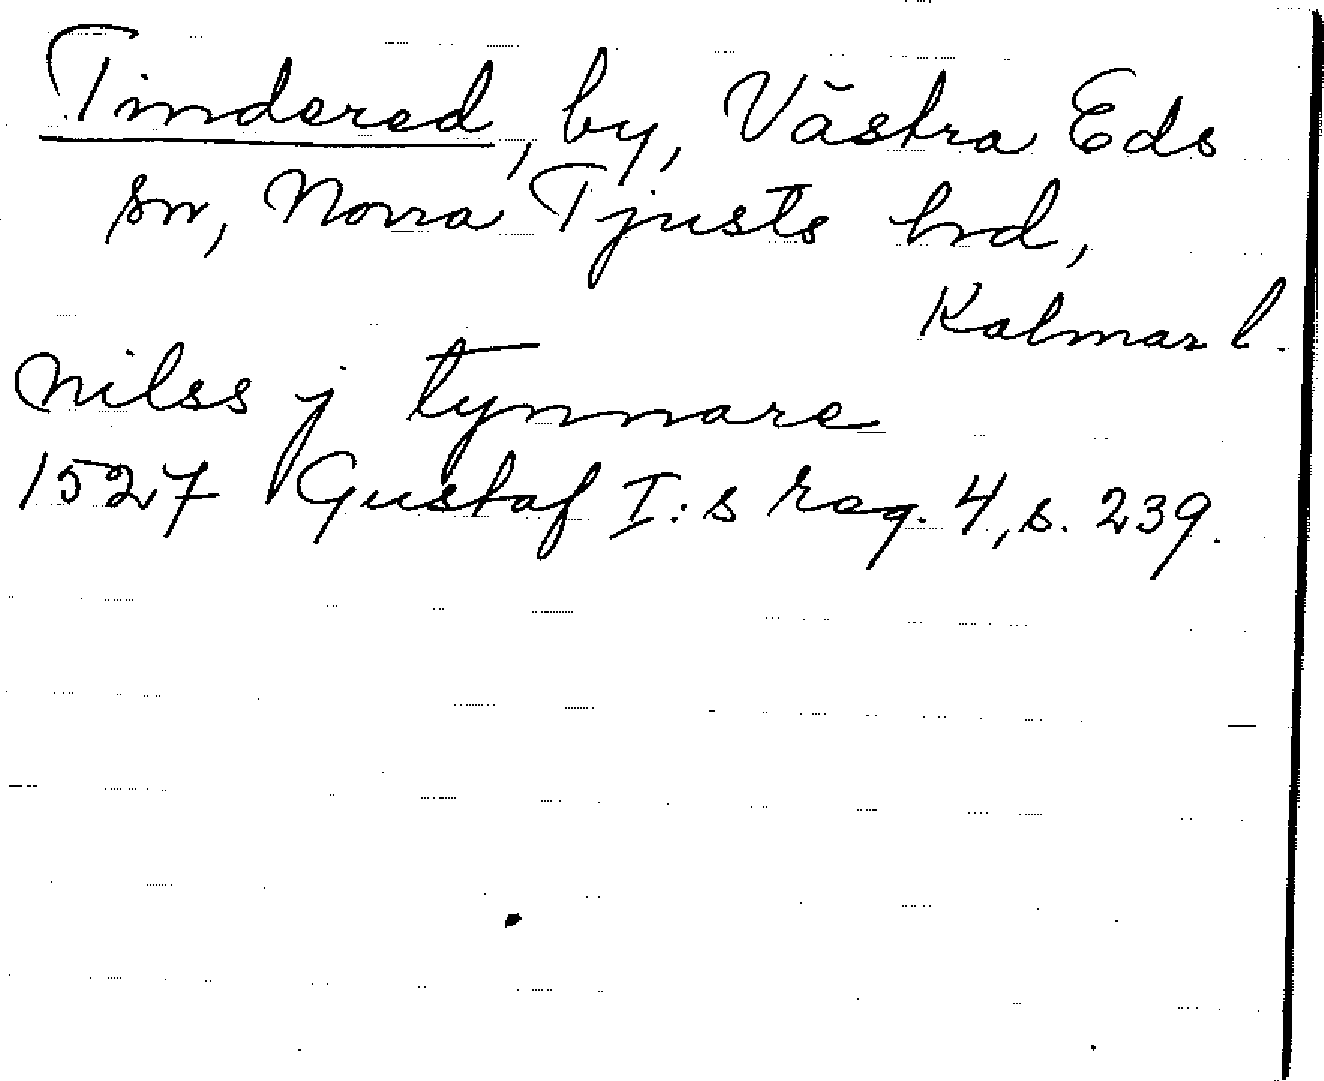 Tindered, by, Västra Eds
sn, Norra Tjusts hrd,
Kalmar l.
Nilss j tynnare
1527 Gustaf I:s reg. 4, s. 239.